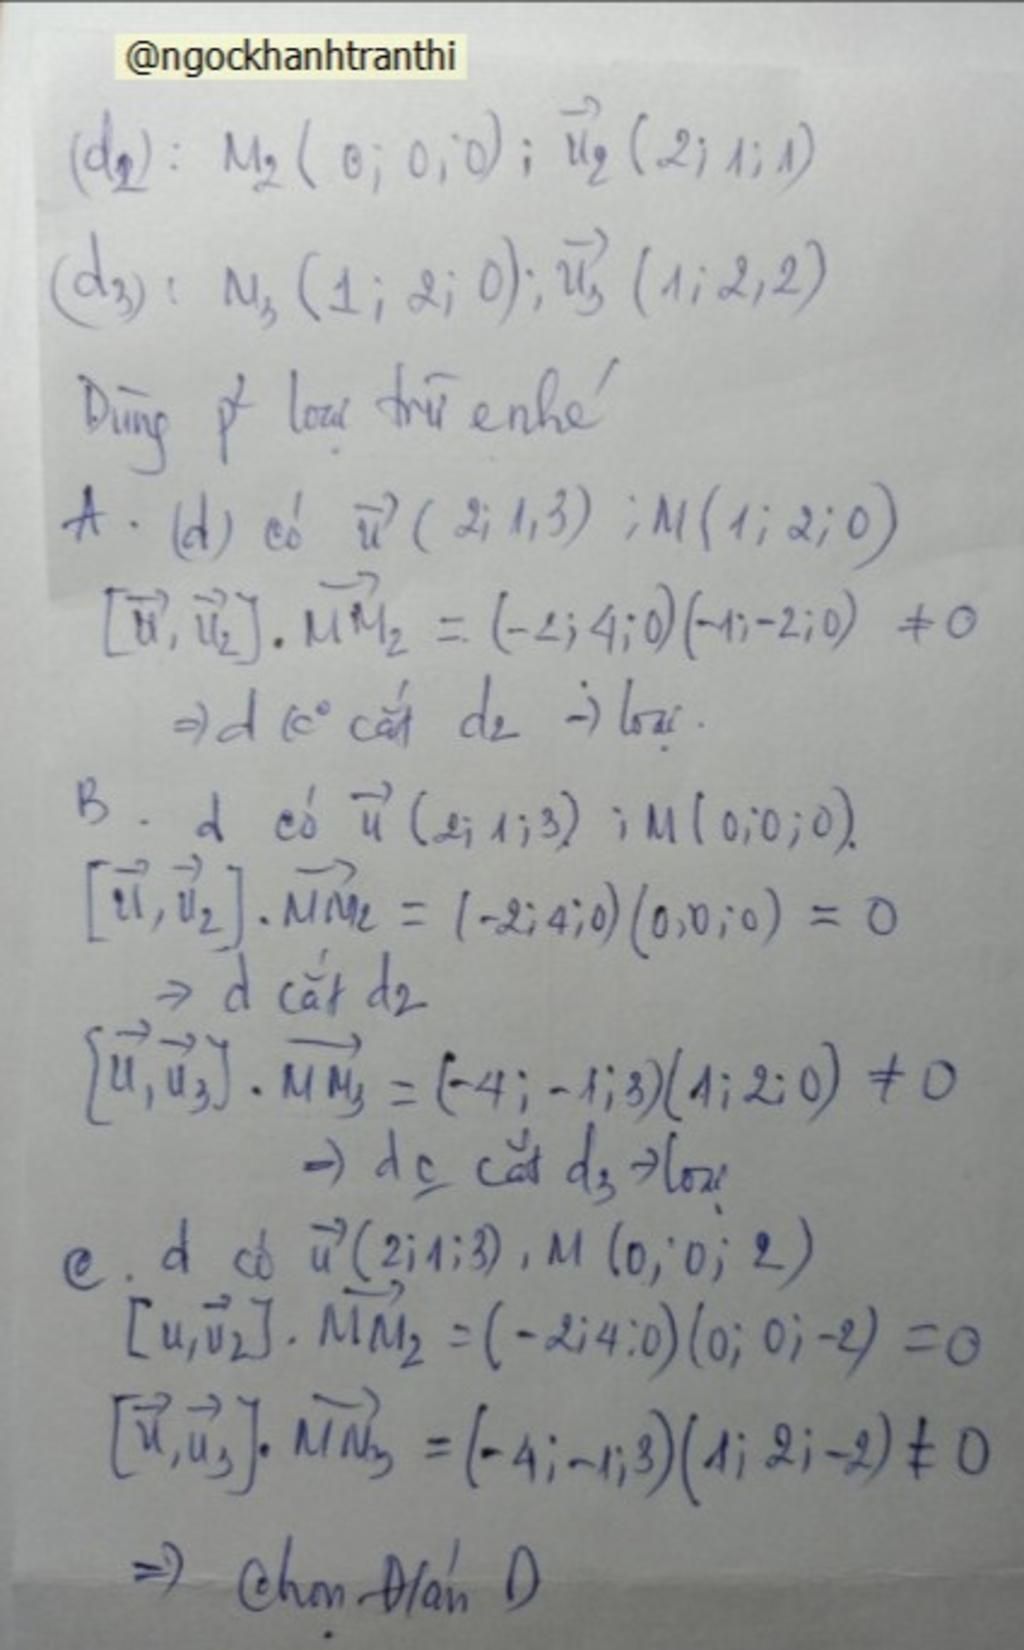 @ngockhanhtranthi
(d2): M2 ( 0; 0; 0) ; u2→ (2; 1; 1)
(d3): M3 (1; 2; 0); u3→ (1; 2, 2)
Dùng p² loại trừ e nhé
A. (d) có u→ ( 2; 1, 3) ; M (1; 2; 0)
[u→, u2→]. MM2→ = (-2; 4; 0)(-1; -2; 0) ≠ 0
⇒ d k° cắt d2 → loại.
B. d có u→ (2; 1; 3) ; M (0; 0; 0).
[u→, u2→]. MM2→ = (-2; 4; 0)(0, 0; 0) = 0
⇒ d cắt d2
[u→, u3→]. MM3→ = (-4; -1; 3)(1; 2; 0) ≠ 0
⇒ d cắt d3 → loại
C. d có u→ (2; 1; 3), M (0; 0; 2)
[u, u2→]. MM2→ = (-2; 4; 0)(0; 0; -2) = 0
[u→, u3→]. MM3→ = (-4; -1; 3)(1; 2; -2) ≠ 0
⇒ Chọn Đ/án D